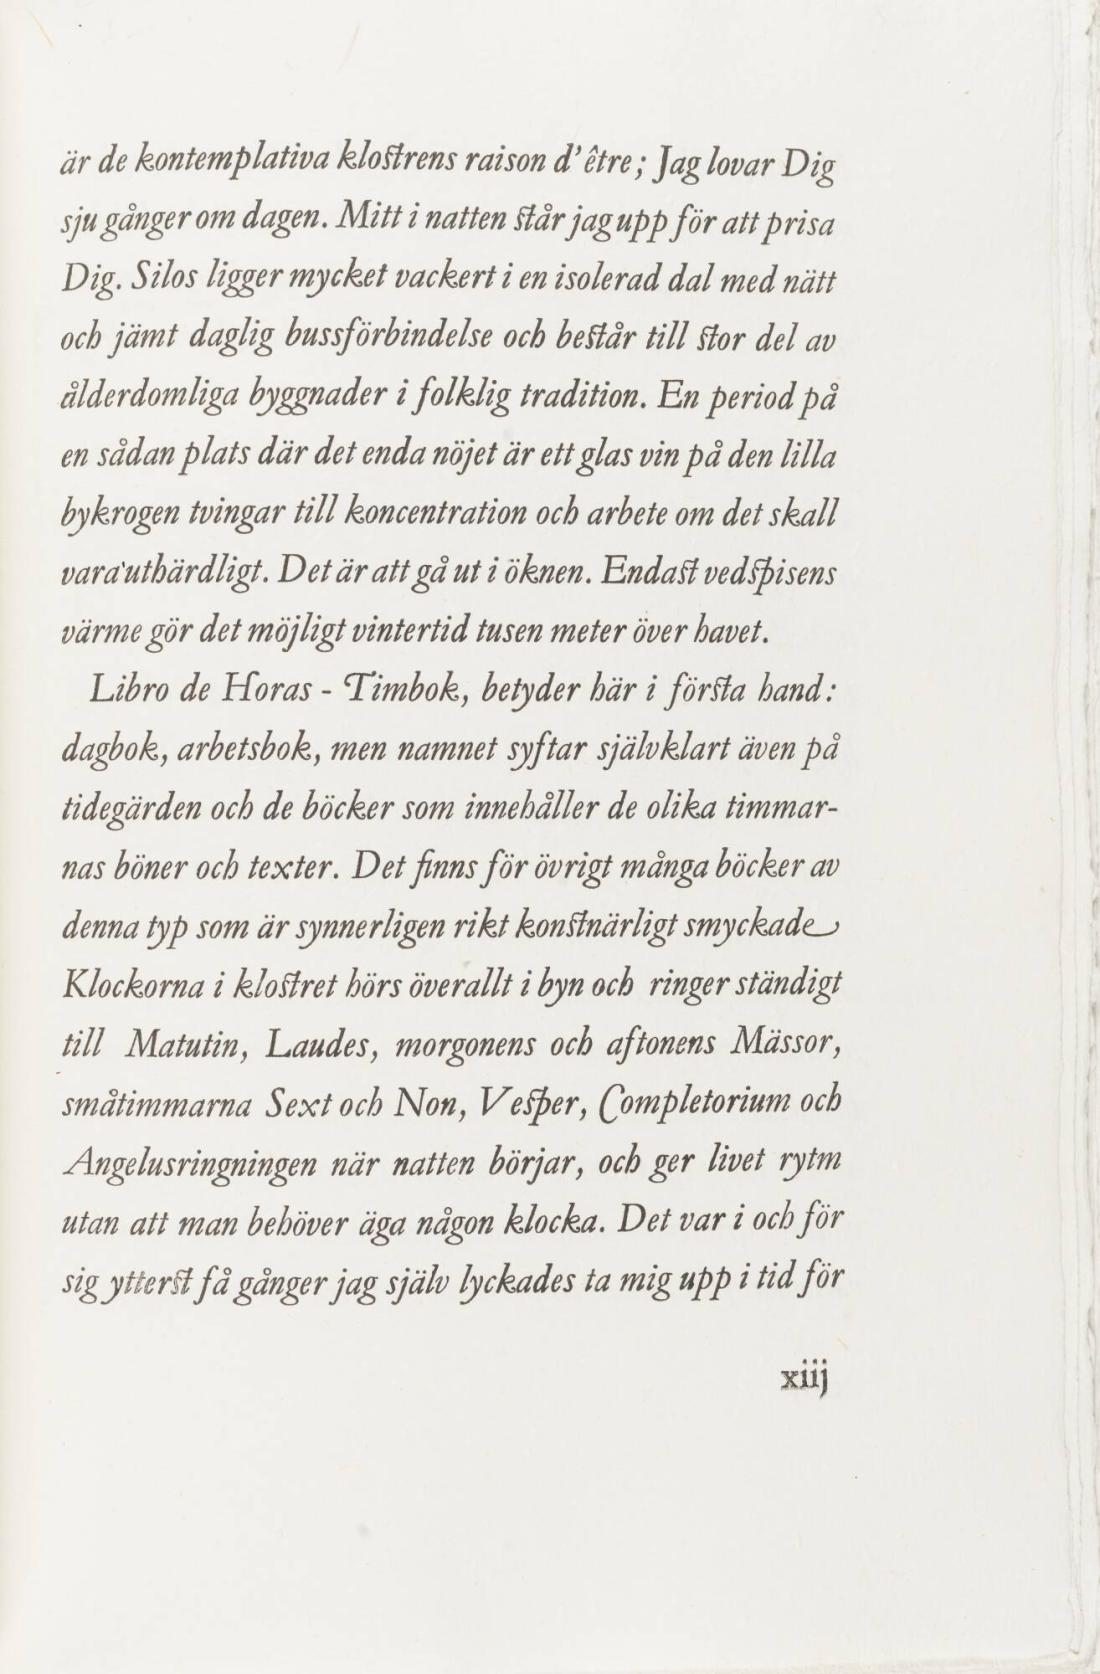 är de kontemplativa klostrens raison d'être; Jag lovar Dig
sju gånger om dagen. Mitt i natten står jag upp för att prisa
Dig. Silos ligger mycket vackert i en isolerad dal med nätt
och jämt daglig bussförbindelse och består till stor del av
ålderdomliga byggnader i folklig tradition. En period på
en sådan plats där det enda nöjet är ett glas vin på den lilla
bykrogen tvingar till koncentration och arbete om det skall
vara'uthärdligt. Det är att gå ut i öknen. Endast vedspisens
värme gör det möjligt vintertid tusen meter över havet.
Libro de Horas - Timbok, betyder här i första hand:
dagbok, arbetsbok, men namnet syftar självklart även på
tidegärden och de böcker som innehåller de olika timmar-
nas böner och texter. Det finns för övrigt många böcker av
denna typ som är synnerligen rikt konstnärligt smyckade
Klockorna i klostret hörs överallt i byn och ringer ständigt
till Matutin, Laudes, morgonens och aftonens Mässor,
småtimmarna Sext och Non, Vesper, Completorium och
Angelusringningen när natten börjar, och ger livet rytm
utan att man behöver äga någon klocka. Det var i och för
sig ytterst få gånger jag själv lyckades ta mig upp i tid för
xiij